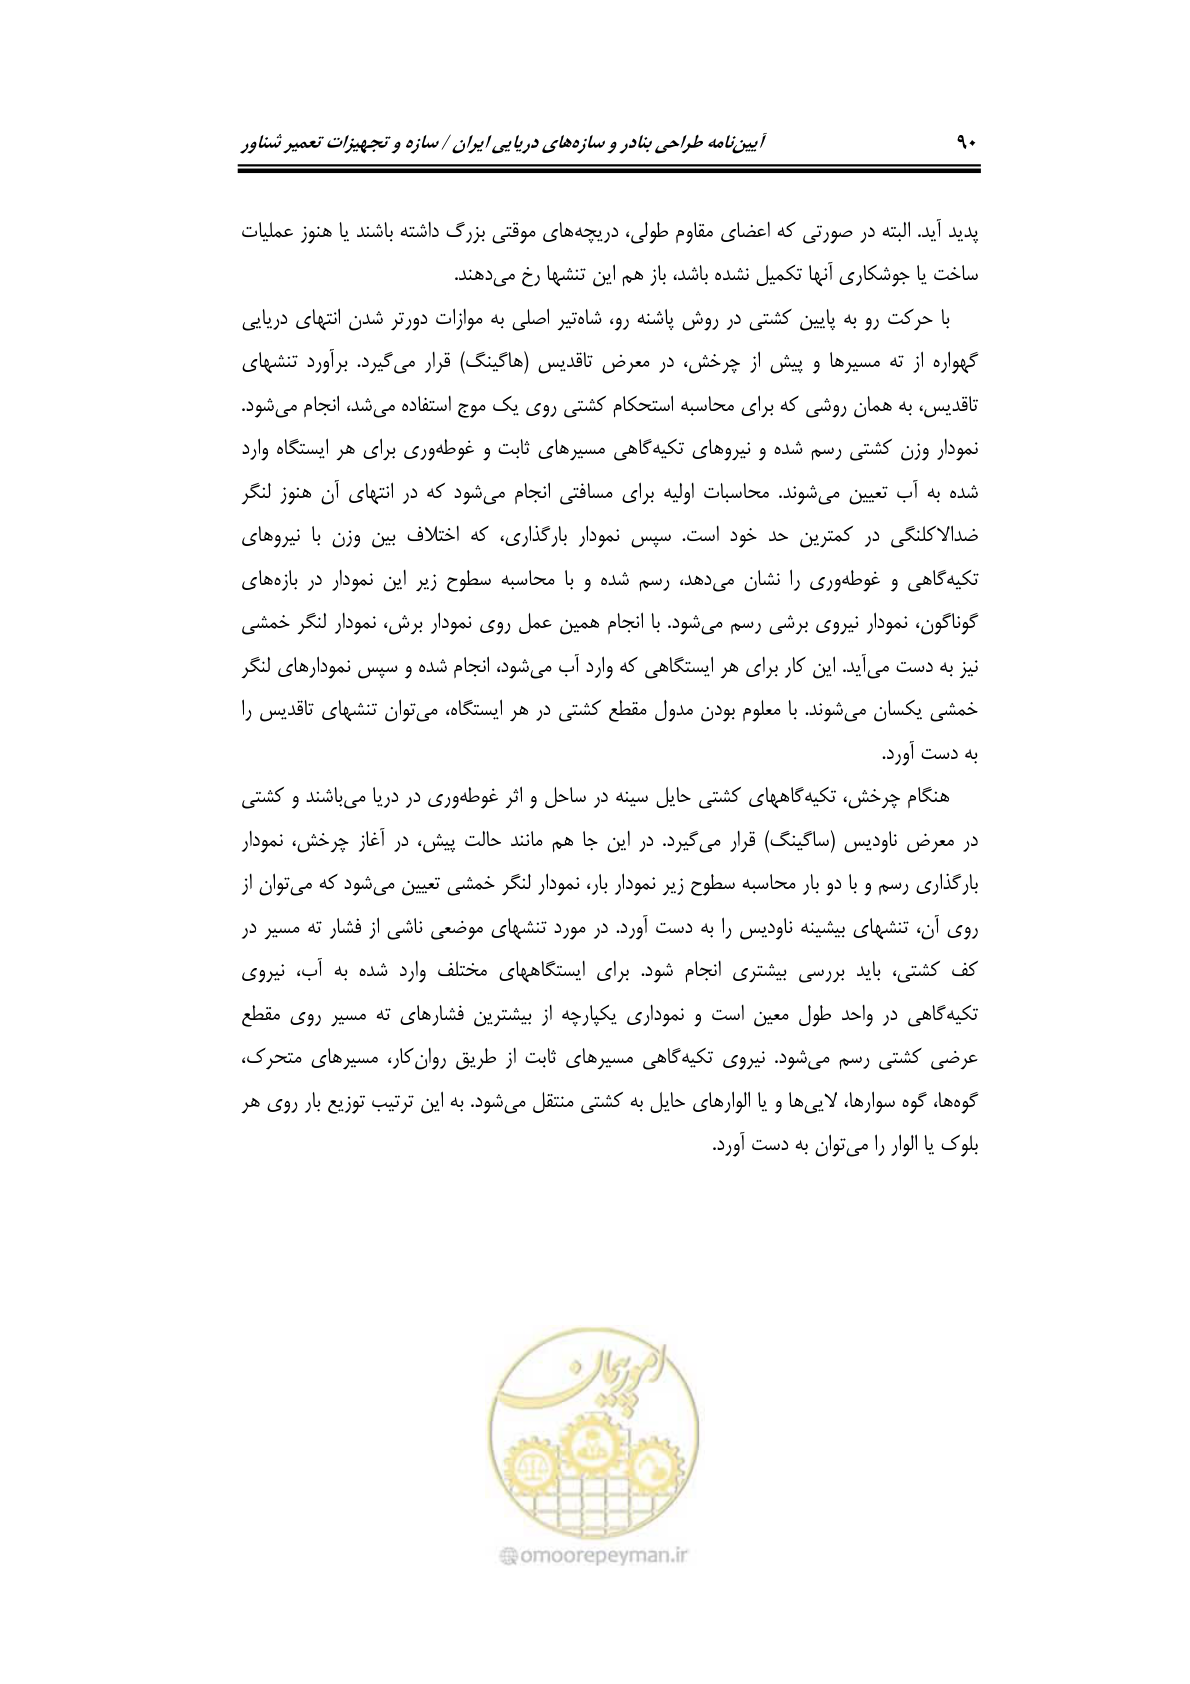 ۹۰ آیین‌نامه طراحی بنادر و سازه‌های دریایی ایران / سازه و تجهیزات تعمیر شناور
پدید آید. البته در صورتی که اعضای مقاوم طولی، دریچه‌های موقتی بزرگ داشته باشند یا هنوز عملیات
ساخت یا جوشکاری آنها تکمیل نشده باشد، باز هم این تنشها رخ می‌دهند.
با حرکت رو به پایین کشتی در روش پاشنه رو، شاه‌تیر اصلی به موازات دورتر شدن انتهای دریایی
گهواره از ته مسیرها و پیش از چرخش، در معرض تاقدیس (هاگینگ) قرار می‌گیرد. برآورد تنشهای
تاقدیس، به همان روشی که برای محاسبه استحکام کشتی روی یک موج استفاده می‌شد، انجام می‌شود.
نمودار وزن کشتی رسم شده و نیروهای تکیه‌گاهی مسیرهای ثابت و غوطه‌وری برای هر ایستگاه وارد
شده به آب تعیین می‌شوند. محاسبات اولیه برای مسافتی انجام می‌شود که در انتهای آن هنوز لنگر
ضدالاکلنگی در کمترین حد خود است. سپس نمودار بارگذاری، که اختلاف بین وزن با نیروهای
تکیه‌گاهی و غوطه‌وری را نشان می‌دهد، رسم شده و با محاسبه سطوح زیر این نمودار در بازه‌های
گوناگون، نمودار نیروی برشی رسم می‌شود. با انجام همین عمل روی نمودار برش، نمودار لنگر خمشی
نیز به دست می‌آید. این کار برای هر ایستگاهی که وارد آب می‌شود، انجام شده و سپس نمودارهای لنگر
خمشی یکسان می‌شوند. با معلوم بودن مدول مقطع کشتی در هر ایستگاه، می‌توان تنشهای تاقدیس را
به دست آورد.
هنگام چرخش، تکیه‌گاههای کشتی حایل سینه در ساحل و اثر غوطه‌وری در دریا می‌باشند و کشتی
در معرض ناودیس (ساگینگ) قرار می‌گیرد. در این جا هم مانند حالت پیش، در آغاز چرخش، نمودار
بارگذاری رسم و با دو بار محاسبه سطوح زیر نمودار بار، نمودار لنگر خمشی تعیین می‌شود که می‌توان از
روی آن، تنشهای بیشینه ناودیس را به دست آورد. در مورد تنشهای موضعی ناشی از فشار ته مسیر در
کف کشتی، باید بررسی بیشتری انجام شود. برای ایستگاههای مختلف وارد شده به آب، نیروی
تکیه‌گاهی در واحد طول معین است و نموداری یکپارچه از بیشترین فشارهای ته مسیر روی مقطع
عرضی کشتی رسم می‌شود. نیروی تکیه‌گاهی مسیرهای ثابت از طریق روان‌کار، مسیرهای متحرک،
گوه‌ها، گوه سوارها، لایی‌ها و یا الوارهای حایل به کشتی منتقل می‌شود. به این ترتیب توزیع بار روی هر
بلوک یا الوار را می‌توان به دست آورد.
امور پیمان
@omoorepeyman.ir